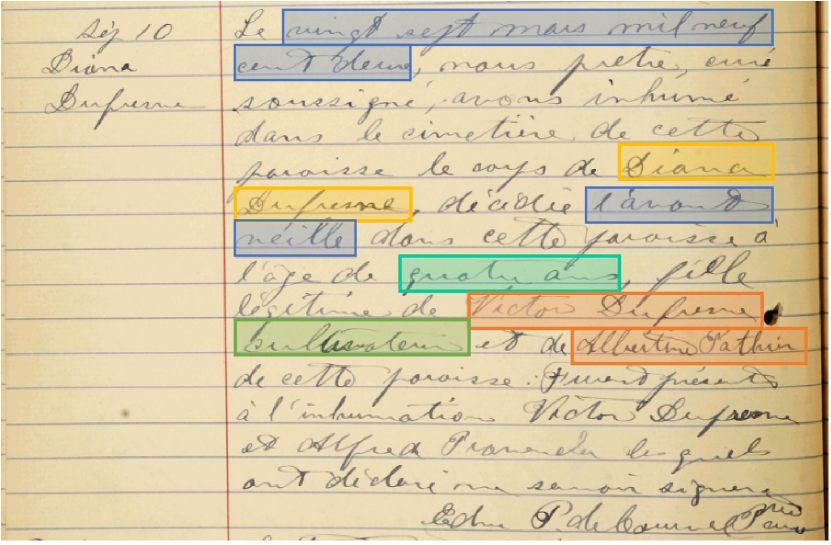 Sép 10
Diana
Dufresne
Le vingt sept mars mil neuf
cent deux, nous prêtre, curé
soussigné, avons inhumé
dans le cimetière de cette
paroisse le corps de Diana
Dufresne, décédée l'avant
veille dans cette paroisse à
l'âge de quatre ans, fille
légitime de Victor Dufresne
cultivateur et de Albertine
de cette paroisse. Furent présents
à l'inhumation Victor Dufresne
et Alfred lesquels
ont déclaré ne savoir signer